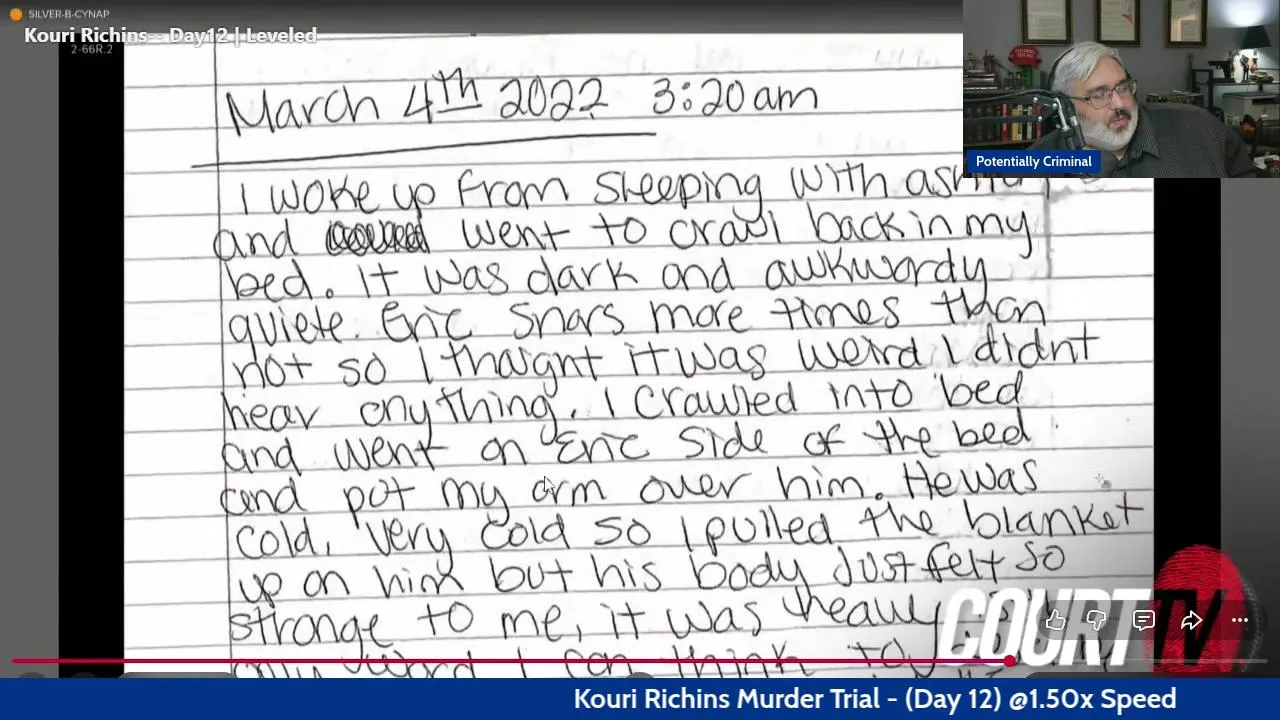 SILVER-B-CYNAP
Kouri Richins - Day12 | Leveled
2-66R.2
March 4th 2022 3:20am
I woke up from sleeping with
and went to crawl back in my
bed. It was dark and awkwardy
quiete. Eric snars more times than
not so I thaignt it was weird I didnt
hear anything. I crawled into bed
and went on Eric side of the bed
and pot my arm over him. He was
cold, very cold so I pulled the blanket
up on him but his body just felt so
strange to me, it was
only word I can think to
Potentially Criminal
COURT TV
Kouri Richins Murder Trial - (Day 12) @1.50x Speed